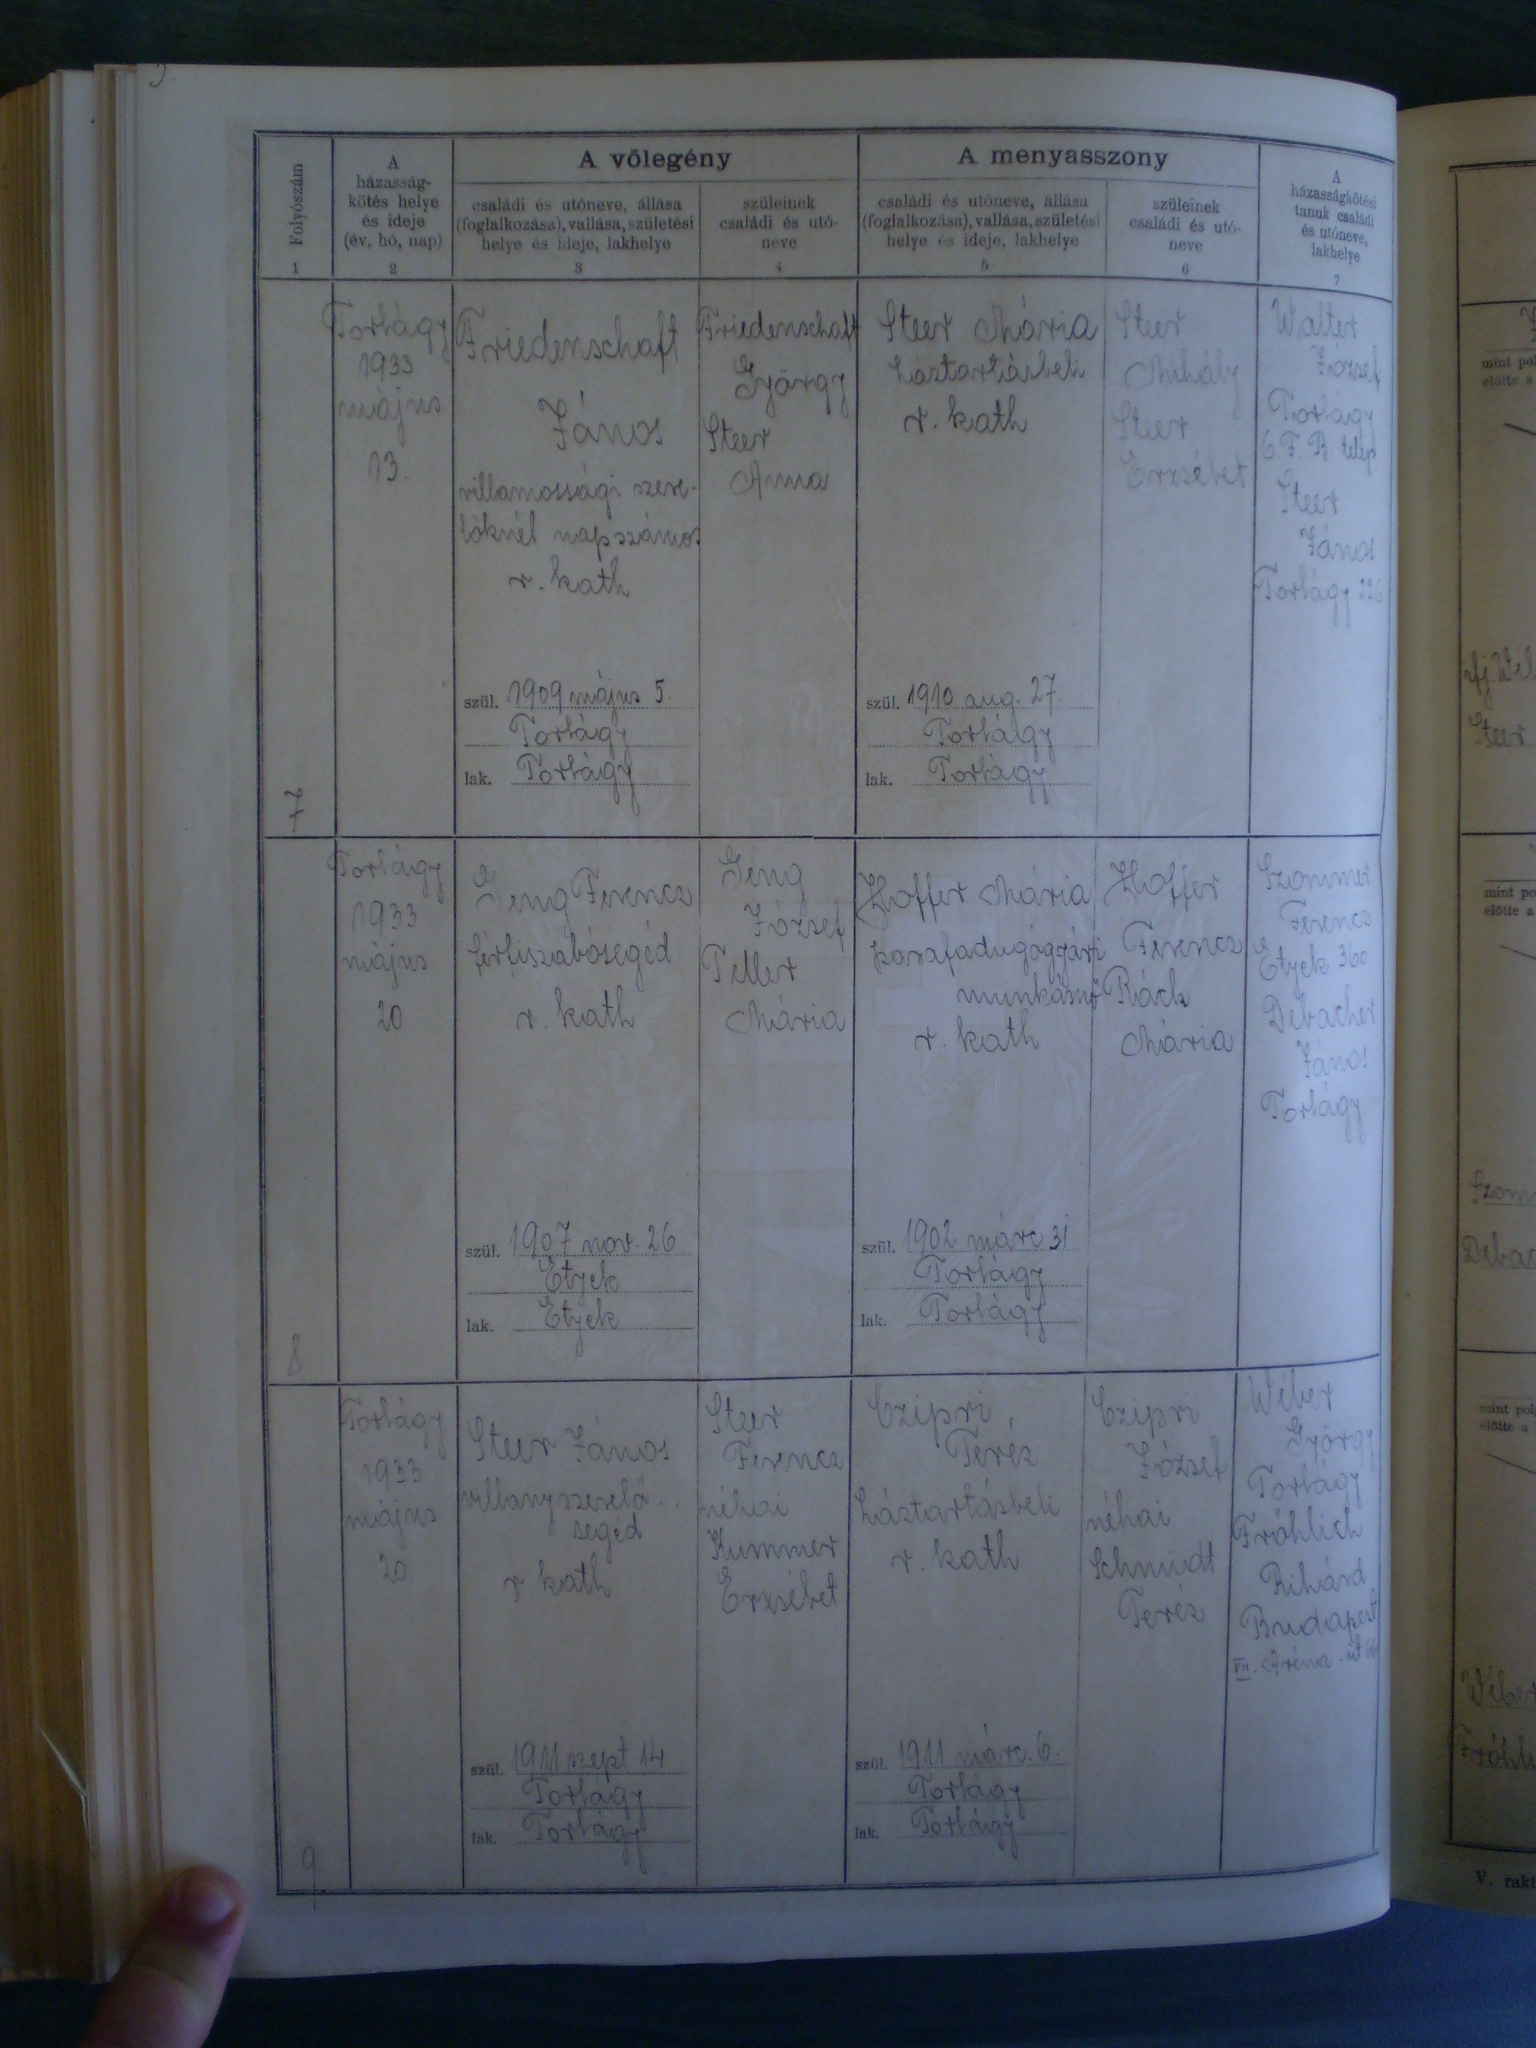 Folyószám
1
A
házasság-
kötés helye
és ideje
(év, hó, nap)
2
A vőlegény
családi és utóneve, állása
(foglalkozása), vallása, születési
helye és ideje, lakhelye
3
szüleinek
családi és utó-
neve
4
A menyasszony
családi és utóneve, állása
(foglalkozása), vallása, születési
helye és ideje, lakhelye
5
szüleinek
családi és utó-
neve
6
A
házasságkötési
tanuk családi
és utóneve,
lakhelye
7
7
Torbágy
1933
május
13.
Friedenschaft
János
villamossági szere-
lőknél napszámos
r. kath
szül. 1909 május 5.
Torbágy
lak. Torbágy
Friedenschaft
György
Steer
Anna
Steer Mária
háztartásbeli
r. kath
szül. 1910 aug. 27.
Torbágy
lak. Torbágy
Steer
Mihály
Steer
Erzsébet
Walter
József
Torbágy
telep
Steer
János
Torbágy 226
8
Torbágy
1933
május
20
Geng Ferencz
férfiszabósegéd
r. kath
szül. 1907 nov. 26
Etyek
lak. Etyek
Geng
József
Teller
Mária
Hoffer Mária
parafadugógyári
munkásnő
r. kath
szül. 1902 márc 31
Torbágy
lak. Torbágy
Hoffer
Ferencz
Ráck
Mária
Szommer
Ferencz
Etyek 360
Debacher
János
Torbágy
9
Torbágy
1933
május
20
Steer János
villanyszerelő
segéd
r kath
szül. 1911 szept 14
Torbágy
lak. Torbágy
Steer
Ferencz
néhai
Kummer
Erzsébet
Czipri
Teréz
háztartásbeli
r. kath
szül. 1911 márc. 6.
Torbágy
lak. Torbágy
Czipri
József
néhai
Schmidt
Teréz
Wéber
György
Torbágy
Fröhlich
Rihárd
Budapest
VII. Aréna-út 66
mint pol
előtte a
Steer
mint po
előtte a
mint pol
előtte a
V. rakt